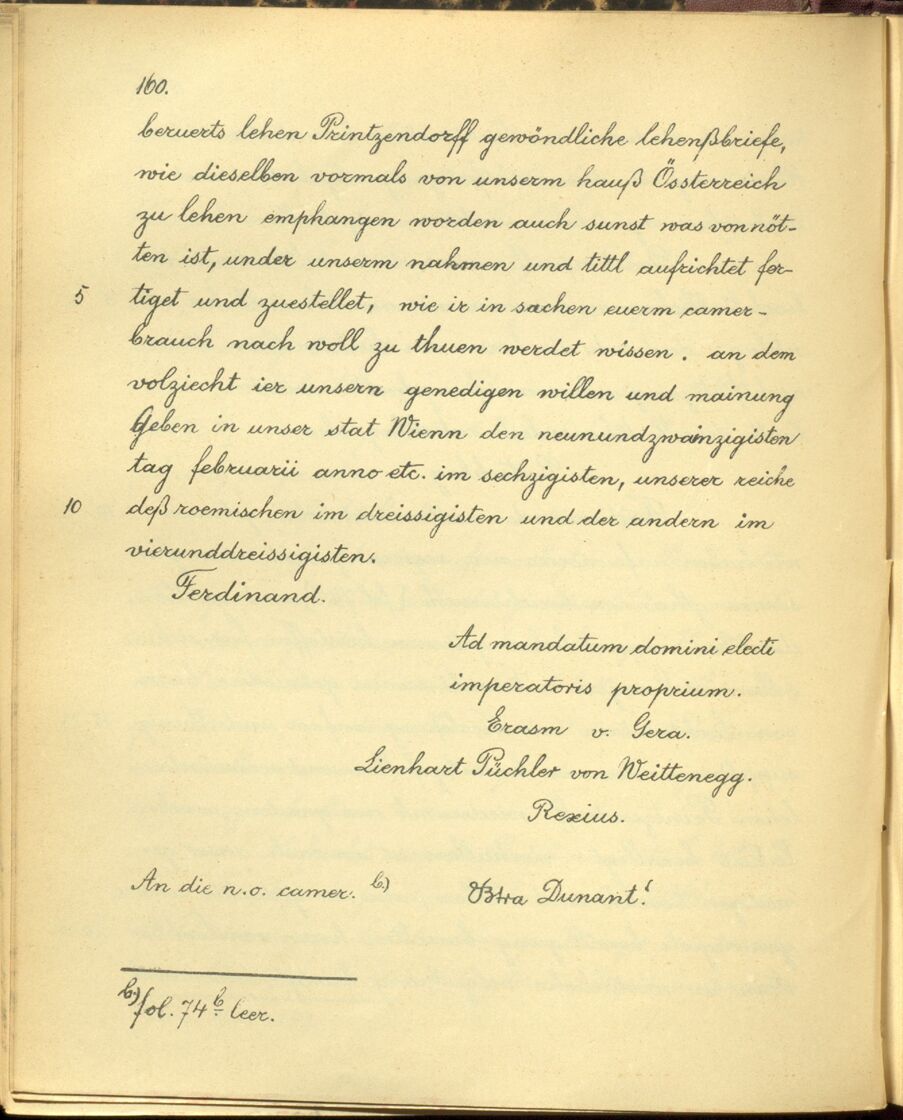 160.
beruerts lehen Printzendorff gewöndliche lehenßbriefe,
wie dieselben vormals von unserm hauß Össterreich
zu lehen emphangen worden auch sunst was von nöt-
ten ist, under unserm nahmen und tittl aufrichtet fer-
5 tiget und zuestellet, wie ir in sachen euerm camer-
brauch nach woll zu thuen werdet wissen. an dem
volziecht ier unsern genedigen willen und mainung
Geben in unser stat Wienn den neunundzwainzigisten
tag februarii anno etc. im sechzigisten, unserer reiche
10 deß roemischen im dreissigisten und der andern im
vierunddreissigisten.
Ferdinand.
Ad mandatum domini electi
imperatoris proprium.
Erasm v. Gera.
Lienhart Püchler von Weittenegg.
Rexius.
An die n.o. camer. b)
Dunant.
b) fol. 74 b leer.